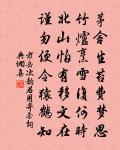 茅舍生苔費夢思
竹爐烹雪復何時
北山怕有移文在
謹勿便令猿鶴知
方岳次韻君用寄茶詞